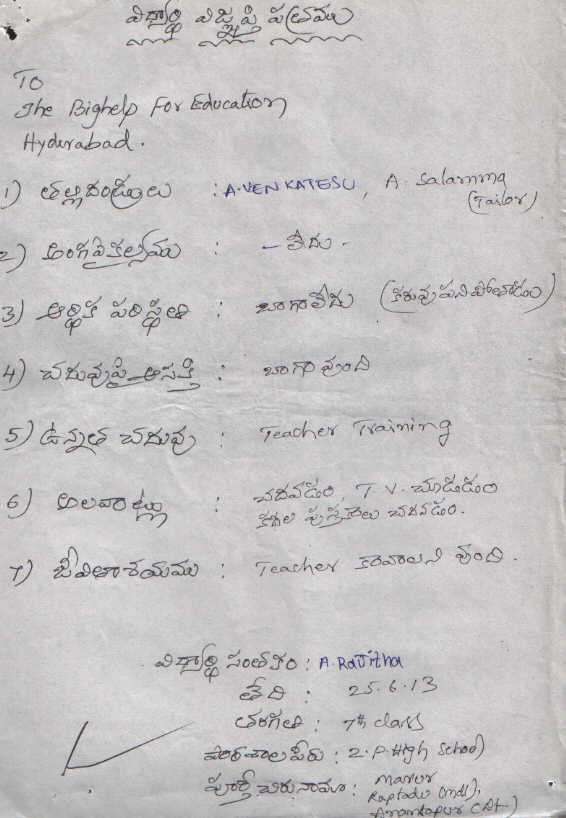 విద్యార్థి విజ్ఞప్తి పత్రము
TO
The Bighelp For Education
Hyderabad.
1) తల్లిదండ్రులు : A.VENKATESU, A. Salamma
(Tailor)
2) అంగవైకల్యము : - లేదు.
3) ఆర్థిక పరిస్థితి : బాగాలేదు (కరువుపని పోతాడు)
4) చదువుపై ఆసక్తి : బాగా వుంది
5) ఉన్నత చదువు : Teacher Training
6) అలవాట్లు : చదవడం, T.V. చూడడం
కథల పుస్తకాలు చదవడం.
7) జీవితాశయము : Teacher కావాలని వుంది.
విద్యార్థి సంతకం : A. Rajitha
తేది : 25.6.13
తరగతి : 7th class
పాఠశాల పేరు : Z.P. High School
పూర్తి చిరునామా : Marur
Raptadu (mdl),
Anantapur (Dt)